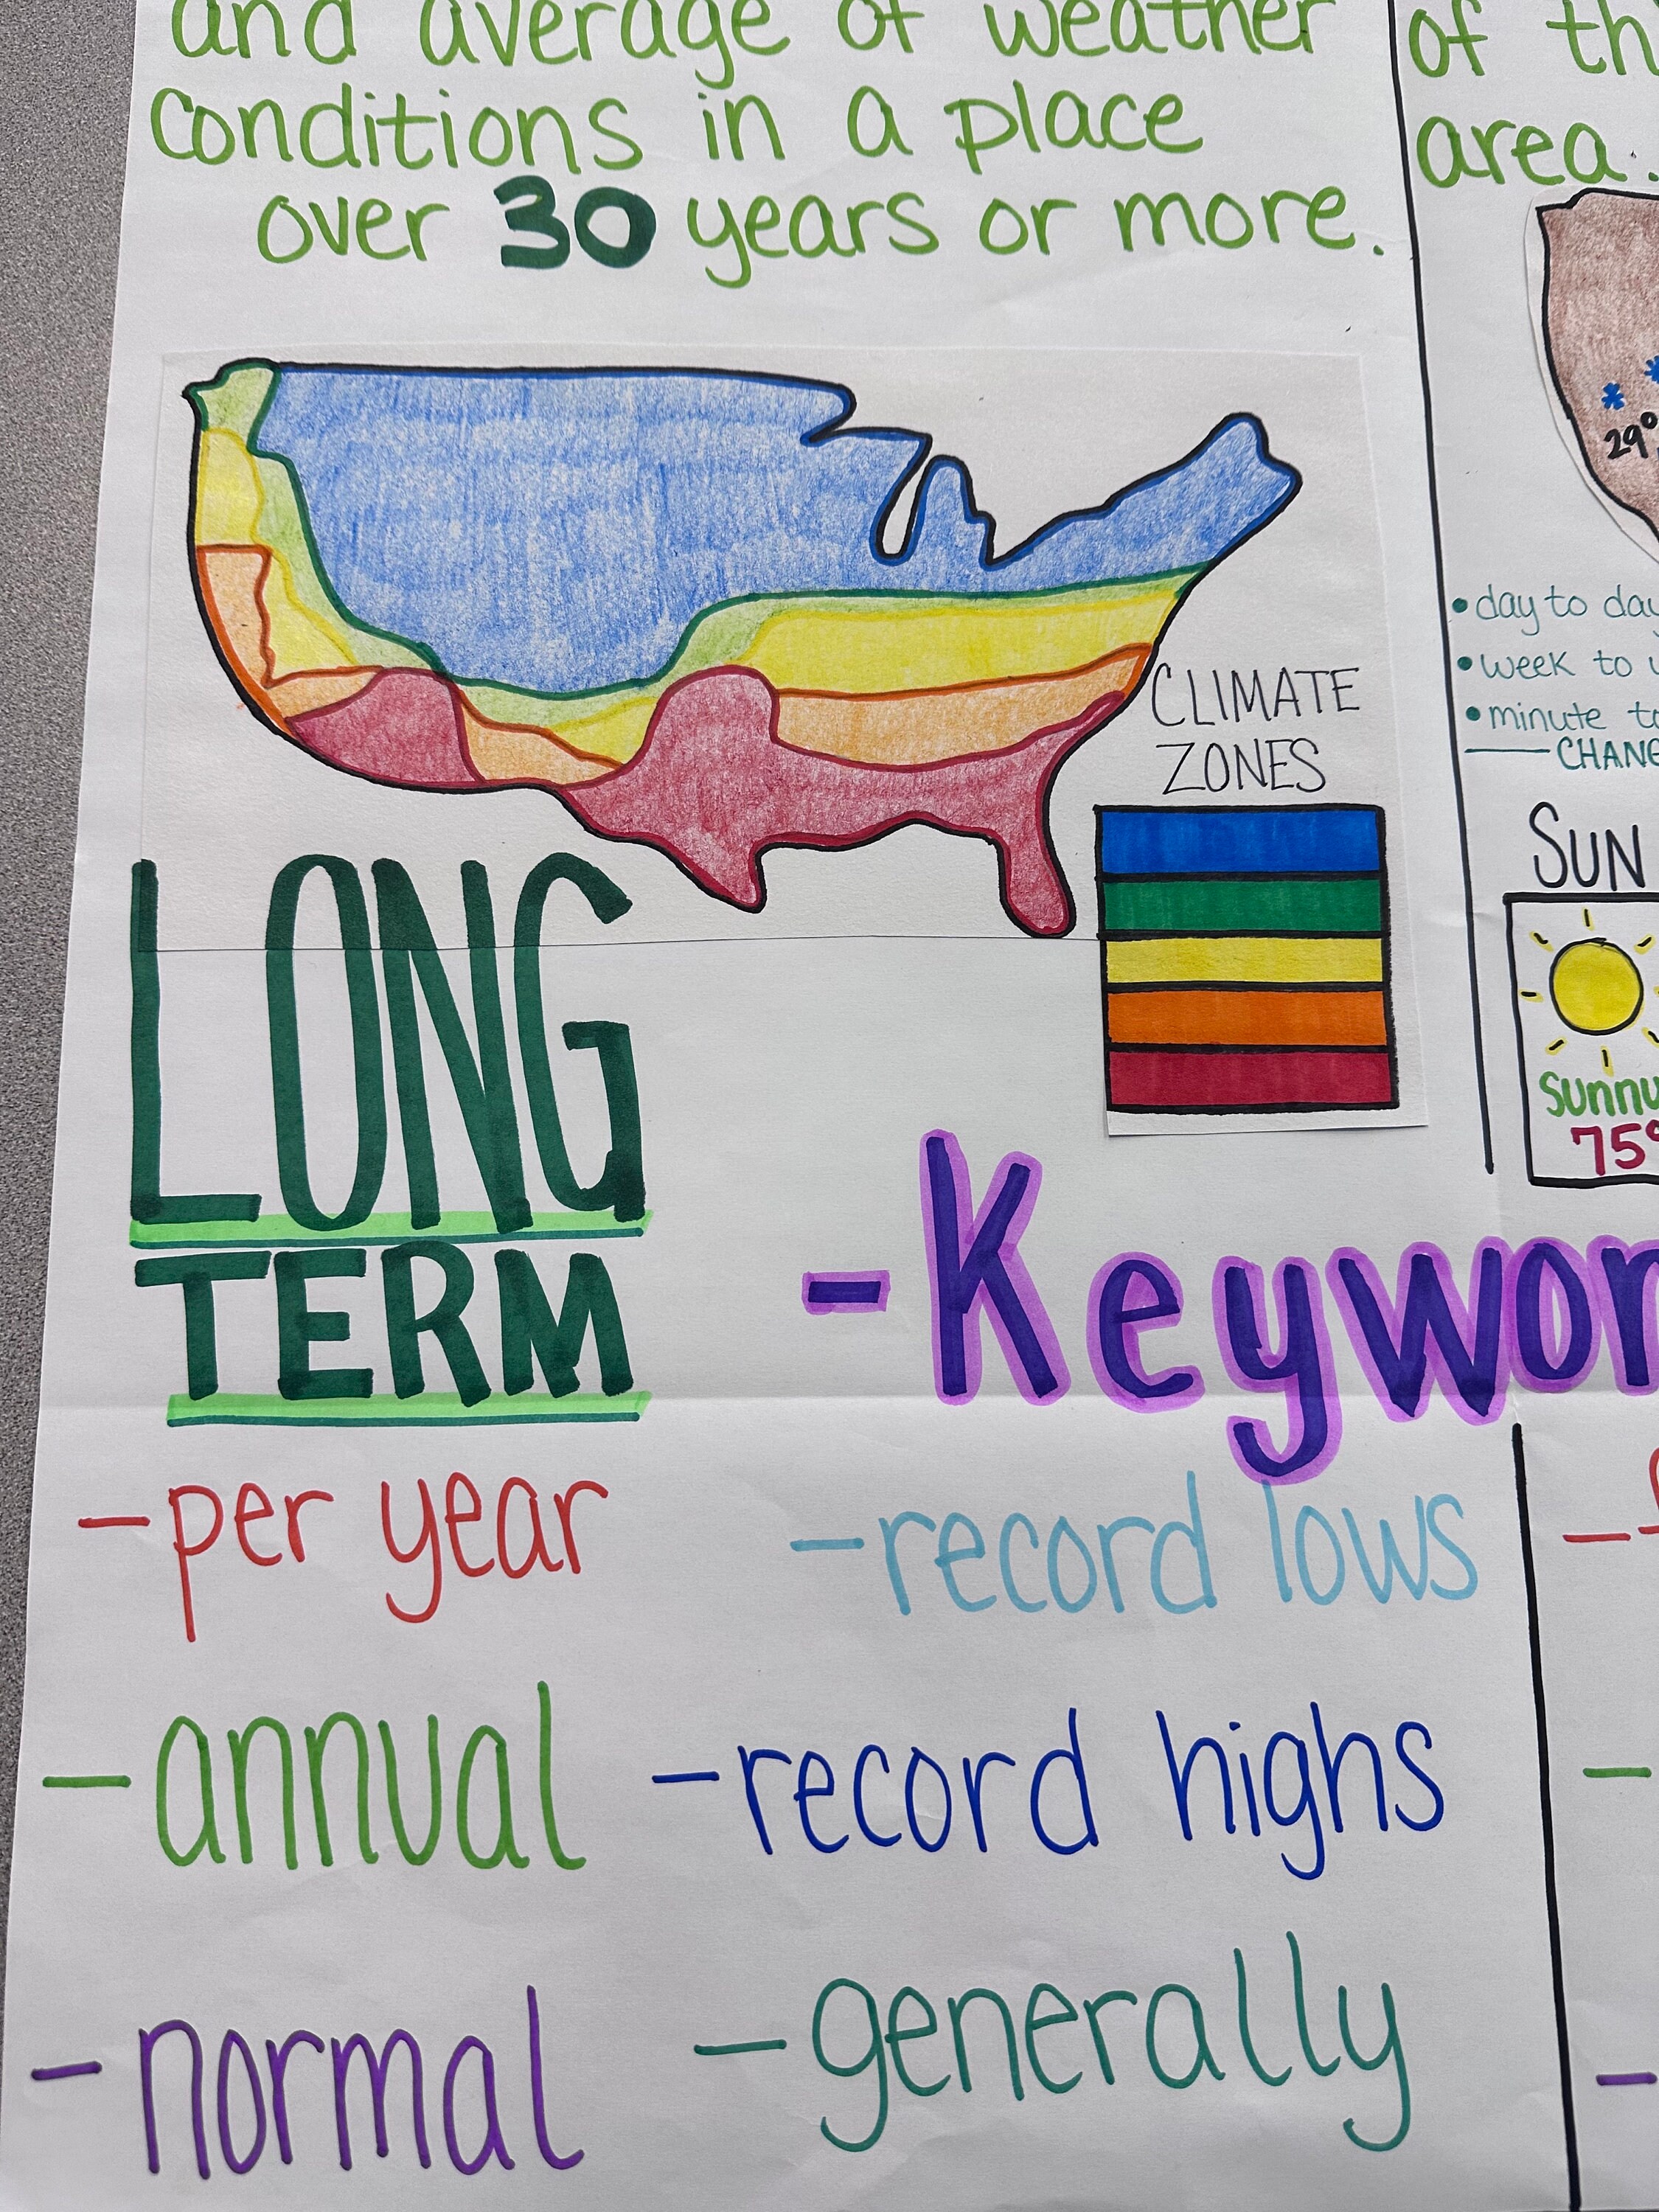 and average of weather
conditions in a place
over 30 years or more.
of th
area.
29°
CLIMATE
ZONES
• day to day
• week to
• minute to
CHANG
SUN
sunny
75°
LONG
TERM
-Keywor
-per year
-record lows
-annual
-record highs
-normal
-generally